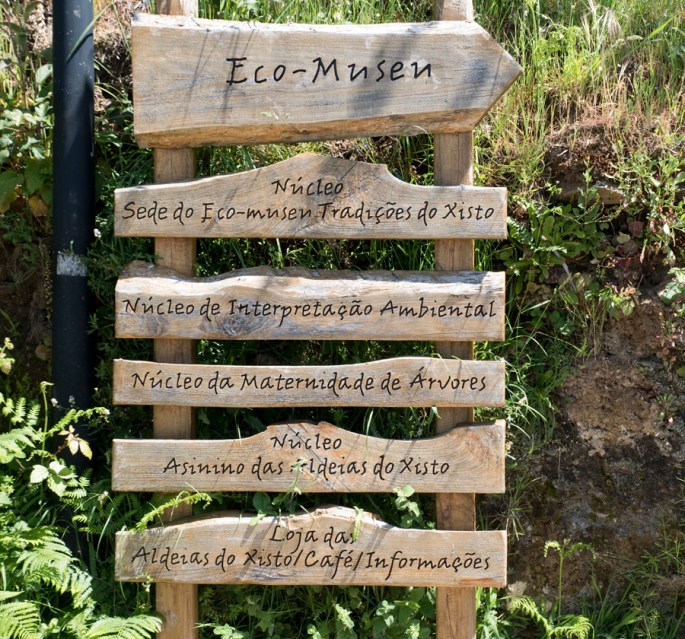 Eco-Museu
Núcleo
Sede do Eco-museu Tradições do Xisto
Núcleo de Interpretação Ambiental
Núcleo da Maternidade de Árvores
Núcleo
Asinino das Aldeias do Xisto
Loja das
Aldeias do Xisto/Café/Informações